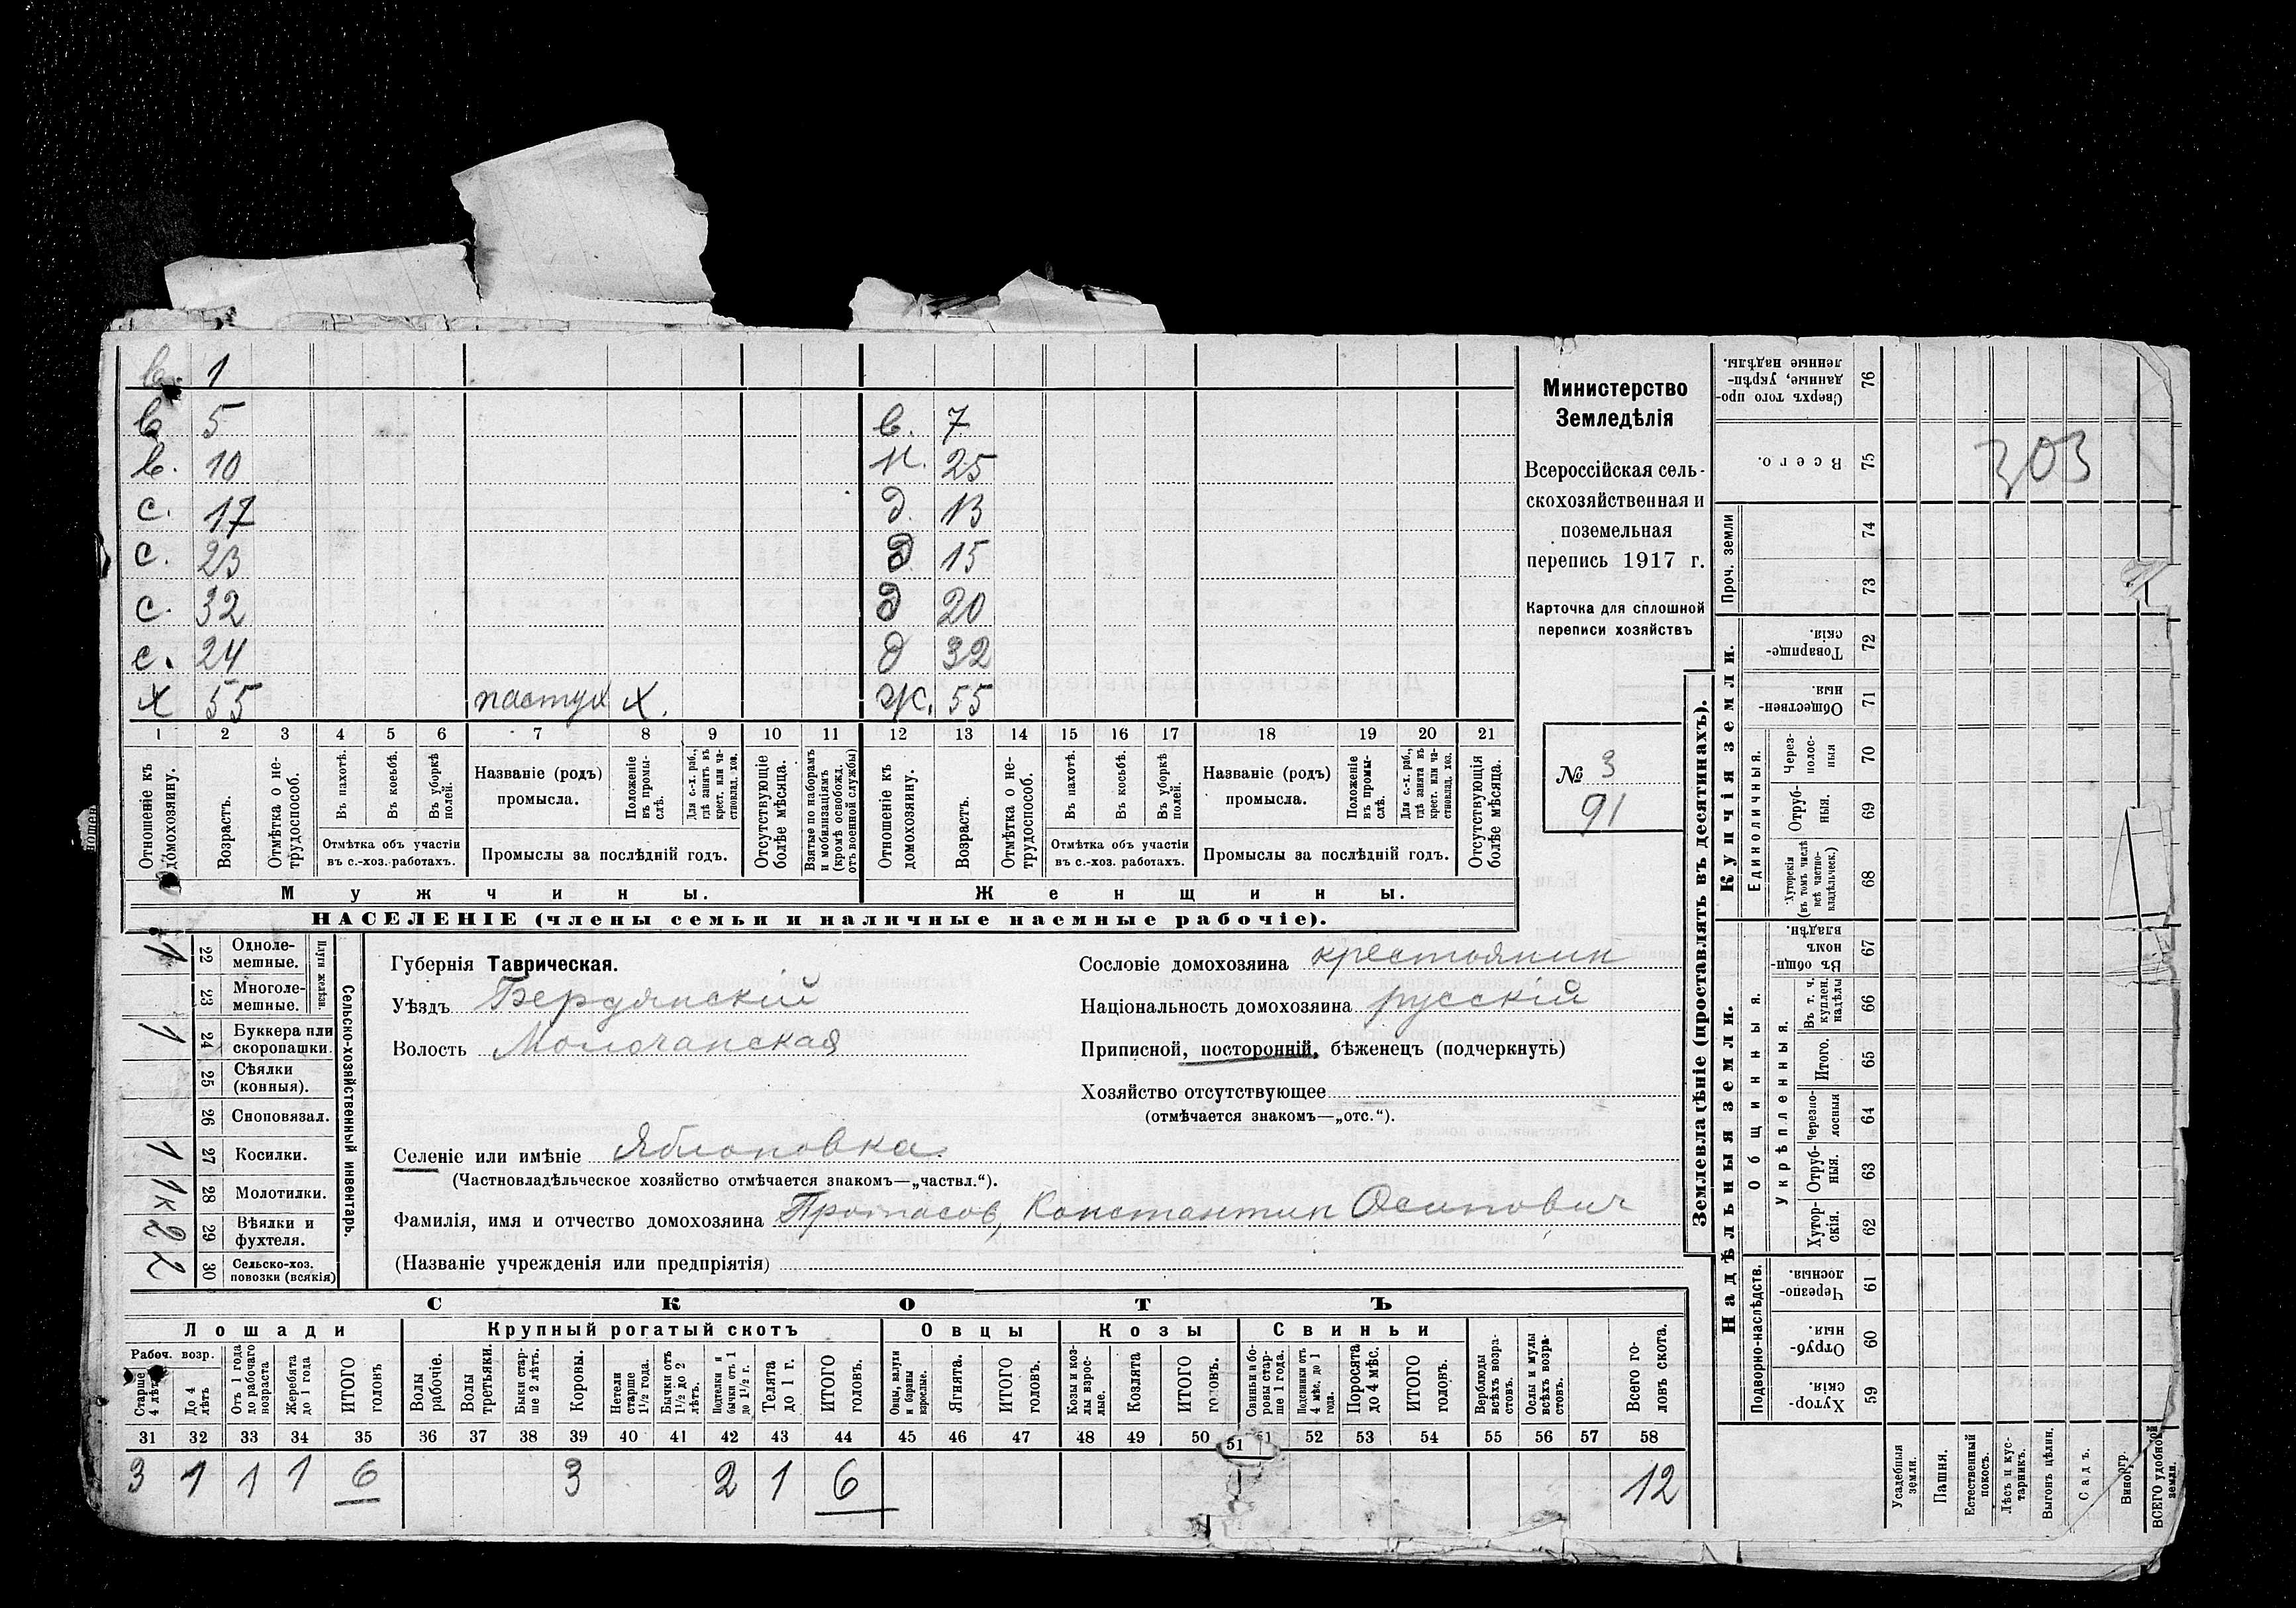 в. 1
в 5 в. 7
в. 10 н. 25
с. 17 д. 13
с. 23 д 15
с. 32 д 20
с. 24 д 32
х 55 пастух х. ж. 55
1 2 3 4 5 6 7 8 9 10 11 12 13 14 15 16 17 18 19 20 21
Отношеніе къ домохозяину.
Возрастъ.
Отмѣтка о не-
трудоспособ.
Въ пахотѣ.
Въ косьбѣ.
Въ уборкѣ
полей.
Отмѣтка объ участіи
въ с.-хоз. работахъ.
Названіе (родъ)
промысла.
Положеніе
въ промы-
слѣ.
Для с.-х. раб.,
гдѣ занятъ въ
крест. или ча-
стновлад. хоз.
Промыслы за послѣдній годъ.
Отсутствующіе
болѣе мѣсяца.
Взятые по наборамъ
и мобилизаціямъ
(кромѣ освобожд.
отъ военной службы)
Отношеніе къ
домохозяину.
Возрастъ.
Отмѣтка о не-
трудоспособ.
Въ пахотѣ.
Въ косьбѣ.
Въ уборкѣ
полей.
Отмѣтка объ участіи
въ с.-хоз. работахъ.
Названіе (родъ)
промысла.
Положеніе
въ промы-
слѣ.
Для с.-х. раб.,
гдѣ занята въ
крест. или ча-
стновлад. хоз.
Промыслы за послѣдній годъ.
Отсутствующія
болѣе мѣсяца.
Мужчины. Женщины.
НАСЕЛЕНІЕ (члены семьи и наличные наемные рабочіе).
Министерство
Земледѣлія
Всероссійская сель-
скохозяйственная и
поземельная
перепись 1917 г.
Карточка для сплошной
переписи хозяйствъ
№ 3
91
1 22 Одноле-
мешные.
23 Многоле-
мешные.
Плуги желѣзн.
1 24 Буккера или
скоропашки.
25 Сѣялки
(конныя).
26 Сноповязал.
1 27 Косилки.
1к 28 Молотилки.
2 29 Вѣялки и
фухтеля.
2 30 Сельско-хоз.
повозки (всякія)
Сельско-хозяйственный инвентарь.
Губернія Таврическая.
Уѣздъ Бердянскій
Волость Молочанская
Сословіе домохозяина крестоянин
Національность домохозяина русскій
Приписной, посторонній, бѣженецъ (подчеркнуть)
Хозяйство отсутствующее
(отмѣчается знакомъ—„отс.“).
Селеніе или имѣніе Яблоновка.
(Частновладѣльческое хозяйство отмѣчается знакомъ—„частвл.“).
Фамилія, имя и отчество домохозяина Протасов, Константин Осипович
(Названіе учрежденія или предпріятія)
СКОТЪ
Лошади Крупный рогатый скотъ Овцы Козы Свиньи
Рабоч. возр.
Старше
4 лѣтъ
До 4
лѣтъ
Отъ 1 года
до рабочаго
возраста
Жеребята
до 1 года
ИТОГО
головъ
Волы
рабочіе.
Волы
третьяки.
Быки стар-
ше 2 лѣтъ.
Коровы.
Нетели
старше
1½ года.
Бычки отъ
1½ до 2
лѣтъ.
Подтелки и
бычки отъ 1
до 1½ г.
Телята
до 1 г.
ИТОГО
головъ.
Овцы, валухи
и бараны
взрослые.
Ягнята.
ИТОГО
головъ.
Козы и коз-
лы взрос-
лые.
Козлята
ИТОГО
головъ.
Свиньи и бо-
ровы стар-
ше 1 года.
Подсвинки отъ
4 мѣс. до 1
года.
Поросята
до 4 мѣс.
ИТОГО
головъ.
Верблюды
всѣхъ возра-
стовъ.
Ослы и мулы
всѣхъ возра-
стовъ.
Всего го-
ловъ скота.
31 32 33 34 35 36 37 38 39 40 41 42 43 44 45 46 47 48 49 50 51 51 52 53 54 55 56 57 58
3 1 1 1 6 3 2 1 6 12
Землевладѣніе (проставлять въ десятинахъ).
Надѣльныя земли. Купчія земли.
Сверхъ того про-
данные, укрѣп-
ленные надѣлы.
76
Всего.
75
303
Проч. земли
74
73
Товарище-
скія.
72
Обществен-
ныя.
71
Единоличныя.
Через-
полос-
ныя
70
Отруб-
ныя.
69
Хуторскія
(въ томъ числѣ
всѣ частно-
владѣльческ.)
68
Общинныя.
Въ общи-
номъ
владѣн.
67
Укрѣпленныя.
Въ т. ч.
куплен.
надѣлы
66
Итого.
65
Черезпо-
лосныя
64
Отруб-
ныя.
63
Хутор-
скія.
62
Подворно-наслѣдств.
Черезпо-
лосныя.
61
Отруб-
ныя.
60
Хутор-
скія.
59
Усадебныя
земли.
Пашня.
Естественный
покосъ.
Лѣсъ и кус-
тарникъ.
Выгонъ цѣлин.
Садъ.
Виногр.
ВСЕГО удобной
земли.